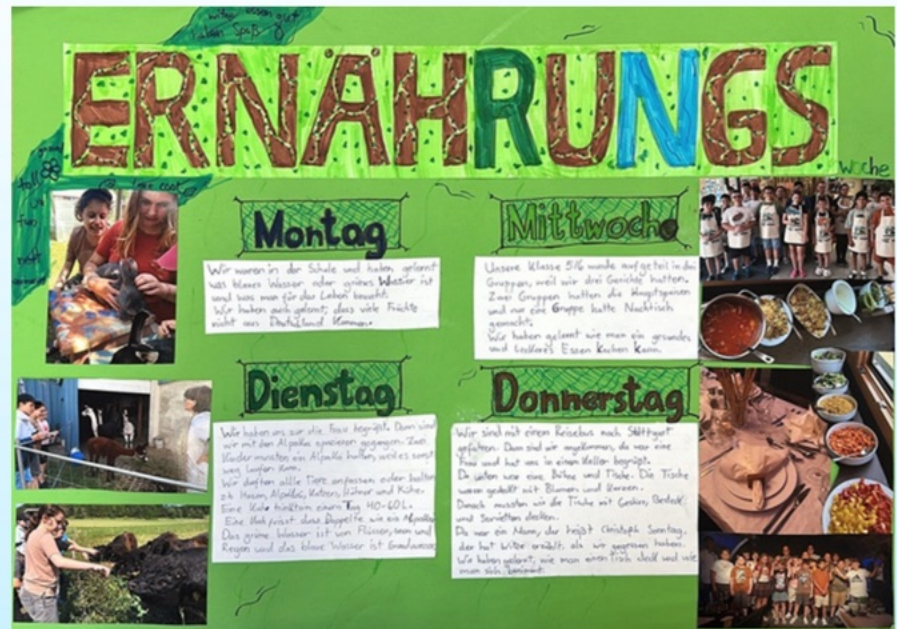 haben Spaß
ERNÄHRUNGS
woche
toll
Montag
Wir waren in der Schule und haben gelernt
was blaues Wasser oder grünes Wasser ist
und was man für das Leben braucht.
Wir haben auch gelernt, dass viele Früchte
nicht aus Deutschland kommen.
Dienstag
Wir haben uns zur die Frau begrüßt. Dann sind
wir mit den Alpakas spazieren gegangen. Zwei
Kinder mussten ein Alpaka halten, weil es sonst
weg laufen kann.
Wir durften alle Tiere anfassen oder halten
zb Hasen, Alpakas, Katzen, Hühner und Kühe.
Eine Kuh trinkt in einem Tag 40-60 L.
Eine Kuh frisst das Doppelte wie ein Alpaka
Das grüne Wasser ist von Flüssen, und
Regen und das blaue Wasser ist Grundwasser
Mittwoche
Unsere Klasse 5/6 wurde aufgeteilt in drei
Gruppen, weil wir drei Gerichte hatten.
Zwei Gruppen hatten die Hauptspeisen
und nur eine Gruppe hatte Nachtisch
gemacht.
Wir haben gelernt wie man ein gesundes
und leckeres Essen Kochen Kann.
Donnerstag
Wir sind mit einem Reisebus nach Stuttgart
gefahren. Dann sind wir angekommen, da war eine
Frau und hat uns in einem Keller begrüßt.
Da unten war eine Bühne und Tische. Die Tische
waren gedeckt mit Blumen und Kerzen.
Danach mussten wir die Tische mit Geschirr, Besteck
und Servietten decken.
Da war ein Mann, der heißt Christoph Sonntag,
der hat Witze erzählt, als wir gegessen haben.
Wir haben gelernt, wie man einen Tisch deckt und wie
man sich benimmt.